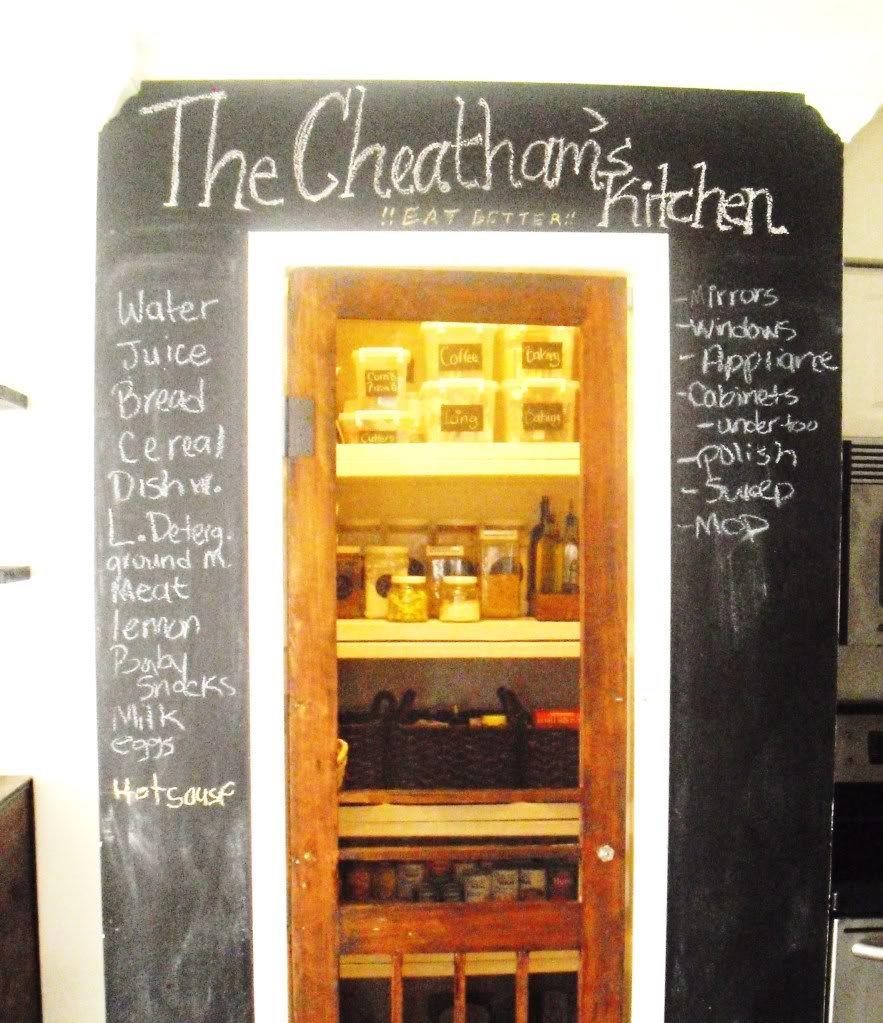 The Cheatham's
Kitchen.
!!EAT BETTER!!
Water
Juice
Bread
Cereal
Dish w.
L. Deterg.
ground m.
Meat
lemon
Baby
Snacks
Milk
eggs
Hot sause
-Mirrors
-Windows
- Appliance
-Cabinets
-under too
-polish
- Sweep
-Mop
Coffee
Baking